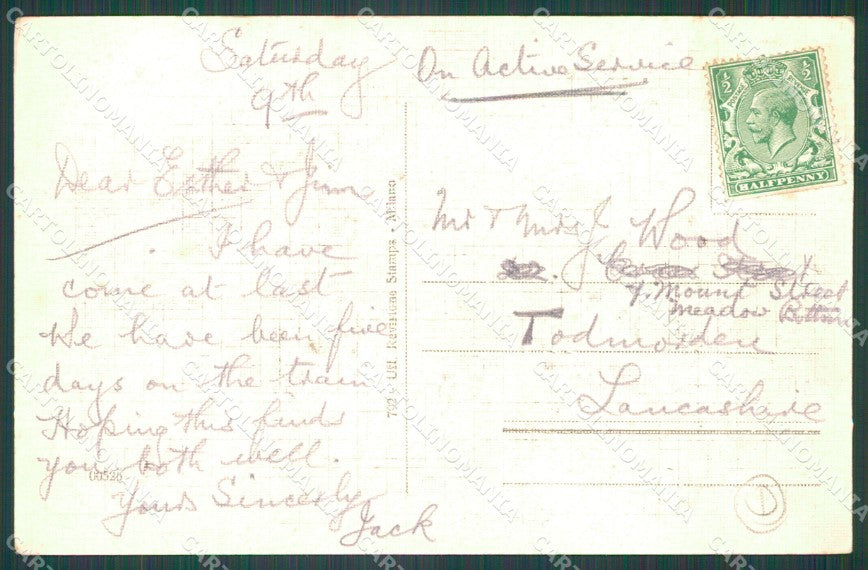 Saturday
9th
On Active Service
Dear Esther & Jim
I have
come at last
We have been five
days on the train
Hoping this finds
you both well.
Yours Sincerly
Jack
00520
702 - Uff. Revisione Stampe - Milano
½ ½
POSTAGE
HALFPENNY
Mr & Mrs J Wood
7. Mount Street
Meadow Bottom
Todmorden
Lancashire
CARTOLINOMANIA